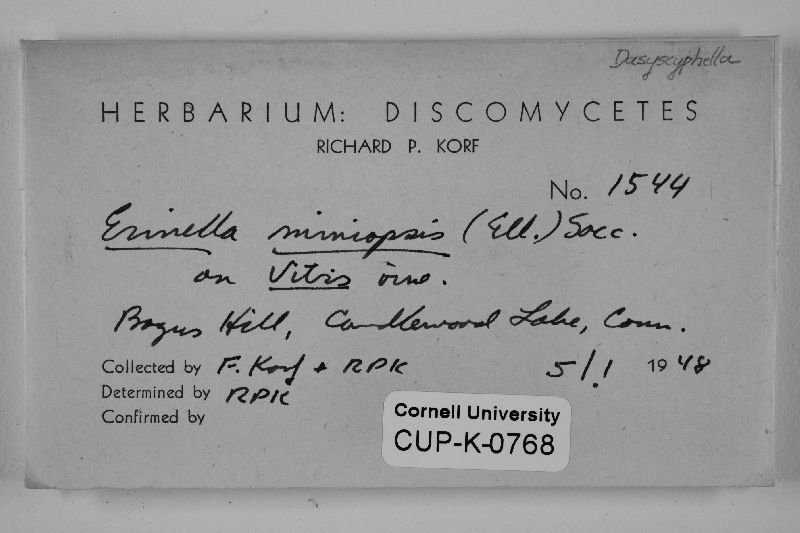 Dasyscyphella
HERBARIUM: DISCOMYCETES
RICHARD P. KORF
No. 1544
Erinella miniopsis (Ell.) Sacc.
on Vitis vine.
Bogus Hill, Candlewood Lake, Conn.
Collected by F. Korf + RPK 5/1 1948
Determined by RPK
Confirmed by
Cornell University
CUP-K-0768